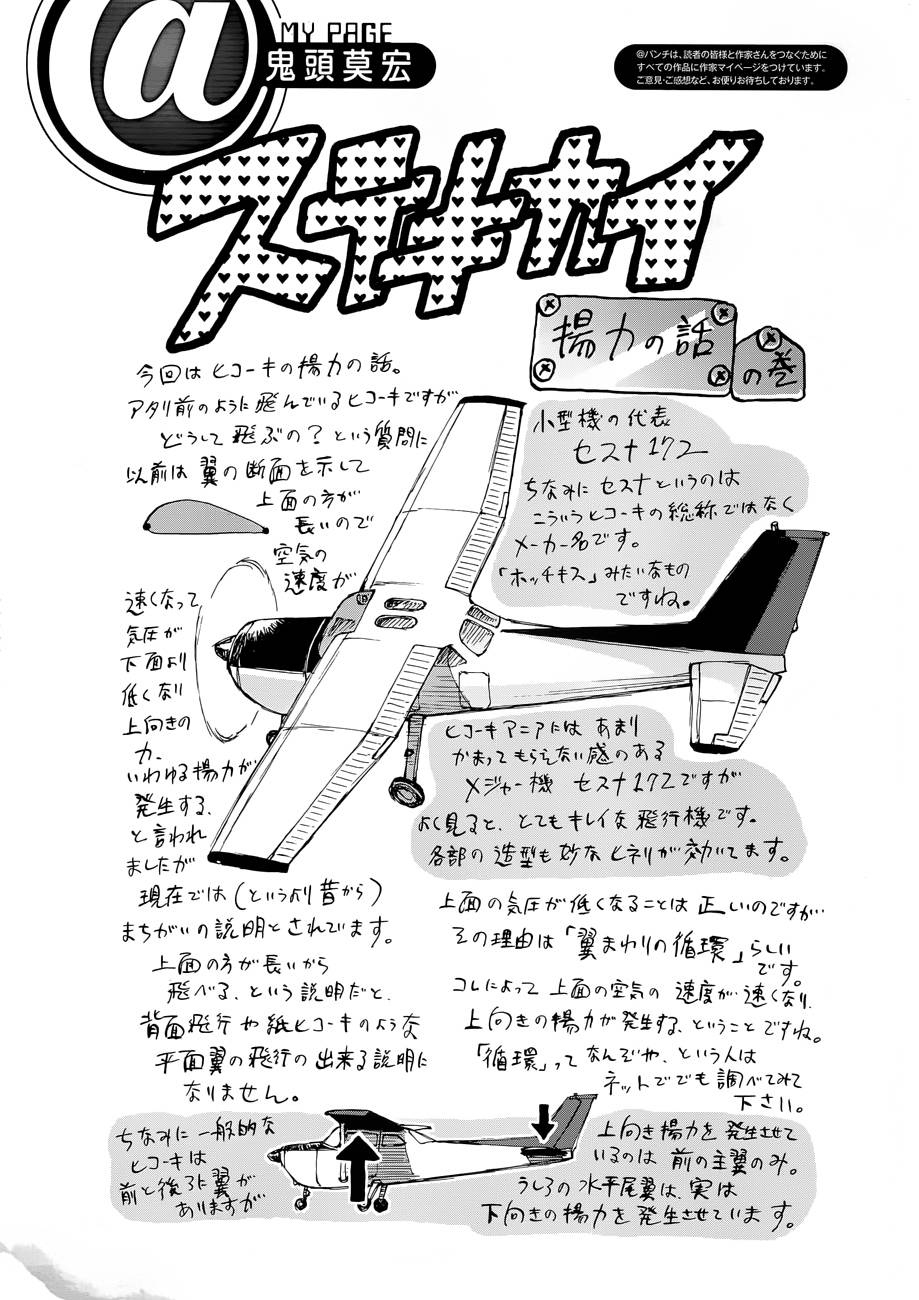 @
MY PAGE
鬼頭莫宏
@バンチは、読者の皆様と作家さんをつなぐために
すべての作品に作家マイページをつけています。
ご意見・ご感想など、お便りお待ちしております。
ステキカイ
揚力の話
の巻
今回はヒコーキの揚力の話。
アタリ前のように飛んでいるヒコーキですが
どうして飛ぶの?という質問に
以前は翼の断面を示して
上面の方が
長いので
空気の
速度が
速くなって
気圧が
下面より
低くなり
上向きの
力、
いわゆる揚力が
発生する、
と言われ
ましたが
現在では(というより昔から)
まちがいの説明とされています。
上面の方が長いから
飛べる、という説明だと、
背面飛行や紙ヒコーキのような
平面翼の飛行の出来る説明に
なりません。
小型機の代表
セスナ172
ちなみにセスナというのは
こういうヒコーキの総称ではなく
メーカー名です。
「ホッチキス」みたいなもの
ですね。
ヒコーキマニアにはあまり
かまってもらえない感のある
メジャー機 セスナ172ですが
よく見ると、とてもキレイな飛行機です。
各部の造型も妙なヒネリが効いてます。
上面の気圧が低くなることは正しいのですが…
その理由は「翼まわりの循環」らしい
です。
コレによって上面の空気の速度が速くなり、
上向きの揚力が発生する、ということですね。
「循環」ってなんぞや、という人は
ネットででも調べてみて
下さい。
ちなみに一般的な
ヒコーキは
前と後ろに翼が
ありますが
上向き揚力を発生させて
いるのは前の主翼のみ。
うしろの水平尾翼は、実は
下向きの揚力を発生させています。